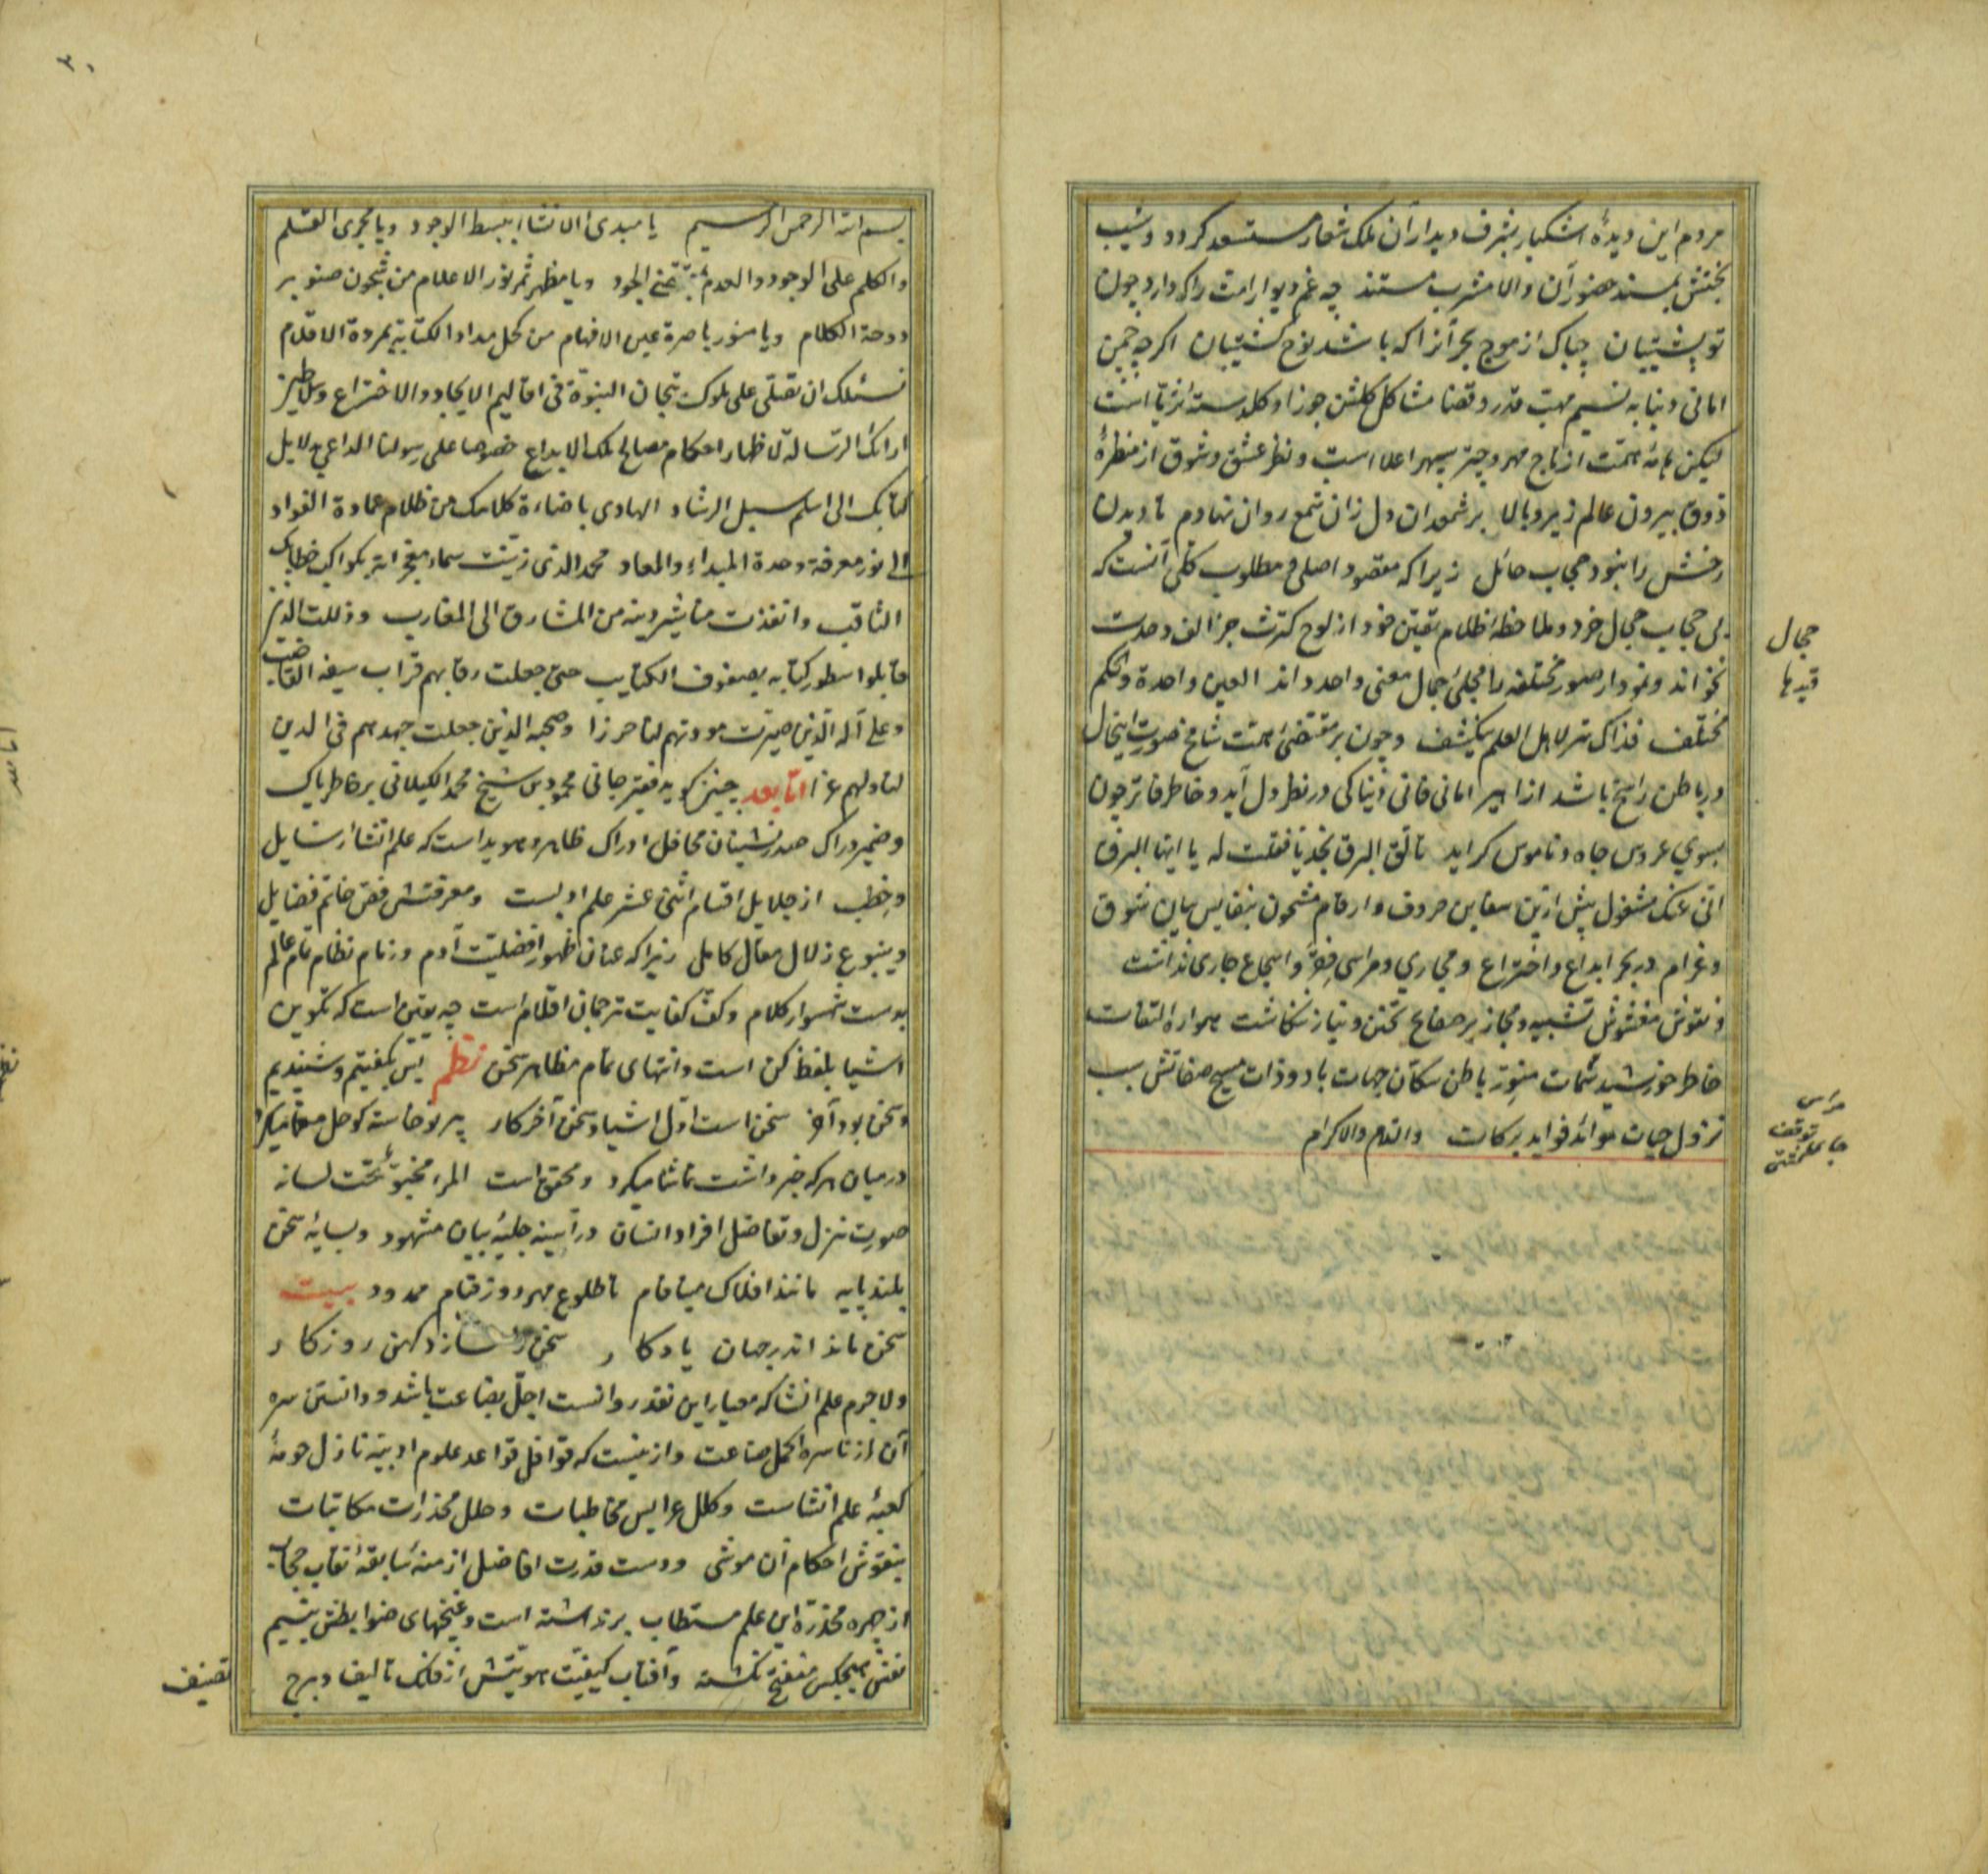 مردم این دیدهٔ اشکبار بشرف دیدار آن ملک شعار مستسعد کردد و شیب
بختش بمسند حضور آن والا مشرب مستند چه غم دیوار امت را که دارد چون
تو پشتیبان چباک از موج بحر آنرا که باشد نوح کشتیبان اکرچه چمن
امانی دنیا به نسیم مهب قدر و قضا مشاکل کلشن جوزا و کلدسته ثریا است
لیکن همت از تاج مهر و چتر سپهر اعلا است و نظر عشق و شوق از منظرهٔ
ذوق بیرون عالم زیر و بالا بر شمعدان دل زان شمع روان نهادم تا دیدن
رخش را نبود حجاب حائل زیرا که مقصود اصلی و مطلوب کلی آنست که
بی حجاب حجال خرد و ملاحظهٔ ظلام تعین خود از لوح کثرت جز الف وحدت
نخواند و نمودار صور مختلفه را مجلیٔ جمال معنی واحد داند العین واحدة والحکم
مختلف فذاک سر لاهل العلم ینکشف و چون بر مقتضیٔ همت شامخ صورت اینحال
در باطن راسخ باشد ازاهیر امانی فانی دنیا کی در نظر دل آید و خاطر فاتر چون
بسوي عروس جاه و ناموس کراید تالق البرق نجدیا فقلت له یا ایها البرق
انی عنک مشغول پیش ازین سفاین حروف و ارقام مشحون بنفایس بیان شوق
و غرام در بحر ابداع و اختراع و مجاري و مراسی فقر و اسجاع جاری نداشت
و نقوش مغشوش تشبیه و مجاز بر صفاح تحنن و نیاز ننکاشت همواره التفات
خاطر خورشید سمات منور باطن سکان جهات باد و ذات مسیح صفاتش سبب
نزول حیات موائد فواید برکات والسلام والاکرام
حجال
قیدها
مراسی
توقف
جای کشتی
۳۰
بسم الله الرحمن الرحیم یا مبدی الانشاء ببسط الوجود ویا مجری القلم
والکلم علی الوجود والعدم بید تمنح الجود ویا مظهر ثمر نور الاعلام من شجون صنوبر
دوحة الکلام ویا منور باصرة عین الافهام من کحل مداد الکتابة بمرودة الاقلام
نسئلک ان تصلی علی ملوک تیجان النبوة فی اقالیم الایجاد والاختراع وسلاطین
ارائک الرسالة لاظهار احکام مصالح ملک الابداع خصوصا علی رسولنا الداعي بدلایل
کتابک الی اسلم سبیل الرشاد الهادی باضاءة کلامک من ظلام عمادة الفواد
الی نور معرفة وحدة المبداء والمعاد محمد الذی زینت سماء معجزاته بکواکب خطابک
الثاقب وانفذت مناشیر دینه من المشارق الی المغارب وذللت الذین
قابلوا سطور کتابه بصفوف الکتایب حتی جعلت رقابهم قراب سیفه القاضب
وعلی آله الذین صیرت مودتهم لنا حرزا وصحبه الذین جعلت جهدهم فی الدین
لنا ولهم عزا اما بعد چنین کوید فقیر جانی محمود بن شیخ محمد الکیلانی بر خاطر پاک
و ضمیر دراک صدر نشینان محافل ادراک ظاهر و هویداست که علم انشاء رسایل
و خطب از جلایل اقسام اثنی عشر علم ادبست و معرفتش فص خاتم فضایل
و ینبوع زلال مقال کامل زیرا که عنان ظهور افضلیت آدم و زمام نظام تام عالم
بدست شهسوار کلام و کف کفایت ترجمان اقلام است چه یقین است که تکوین
اشیا بلفظ کن است و انتهای تمام مظاهر سخن نظم پس بکفتیم و شنیدیم
و سخن بود آخر سخن است اول اشیا و سخن آخر کار پیر نو خاسته کو حل معما میکرد
در میان هر که خبر داشت تماشا میکرد و محقق است المرء مخبوء تحت لسانه
صورت تنزل و تفاضل افراد انسان در آیینه جلیهٔ بیان مشهود و بسایهٔ سخن
بلند پایه مانند افلاک مینافام تا طلوع مهر روز قیام ممدود بیت
سخن ماند اندر جهان یادکار سخن را نسازد کهن روزکار
ولاجرم علم انشا که معیار این نقد رو انست اجل بضاعت باشد و دانستن سره
آن از ناسره اکمل صناعت و ازینست که قوافل قواعد علوم ادبیه نازل حومهٔ
کعبهٔ علم انشاست و کلل عرایس مخاطبات و حلل مخدرات مکاتبات
بنقوش احکام آن موشی و دست قدرت افاضل ازمنهٔ سابقه نقاب حجاب
از چهره مخدرهٔ این علم مستطاب برنداشته است و غنچهای ضوابطش بنسیم
نفس هیچکس منفتح نکشته و آفتاب کیفیت هویتش از فلک تالیف و برج
تصنیف